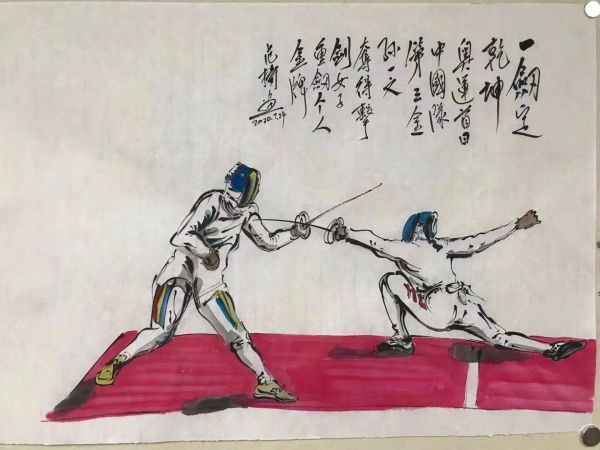 一劍定
乾坤
奧運首日
中國隊
第三金
孙一文
奪得擊
劍女子
重劍个人
金牌
范
2020.7.24